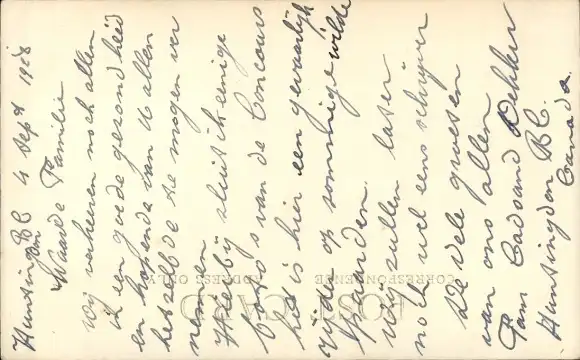 Huntingdon BC 4 Sept 1928
Waarde Familie
Wij verkeeren noch allen
in en goede gezondheid
en hopende van U allen
hetzelfde te mogen ver
nemen
Hierbij sluit ik eenige
foto's van de Concours
het is hier een gevaarlijk
rijden op sommige wilde
paarden.
wij zullen later
noch wel eens schrijven
de groeten
van ons allen
Fam Dekker
Huntingdon B.C.
Canada.
POST CARD
CORRESPONDENCE
ADDRESS ONLY